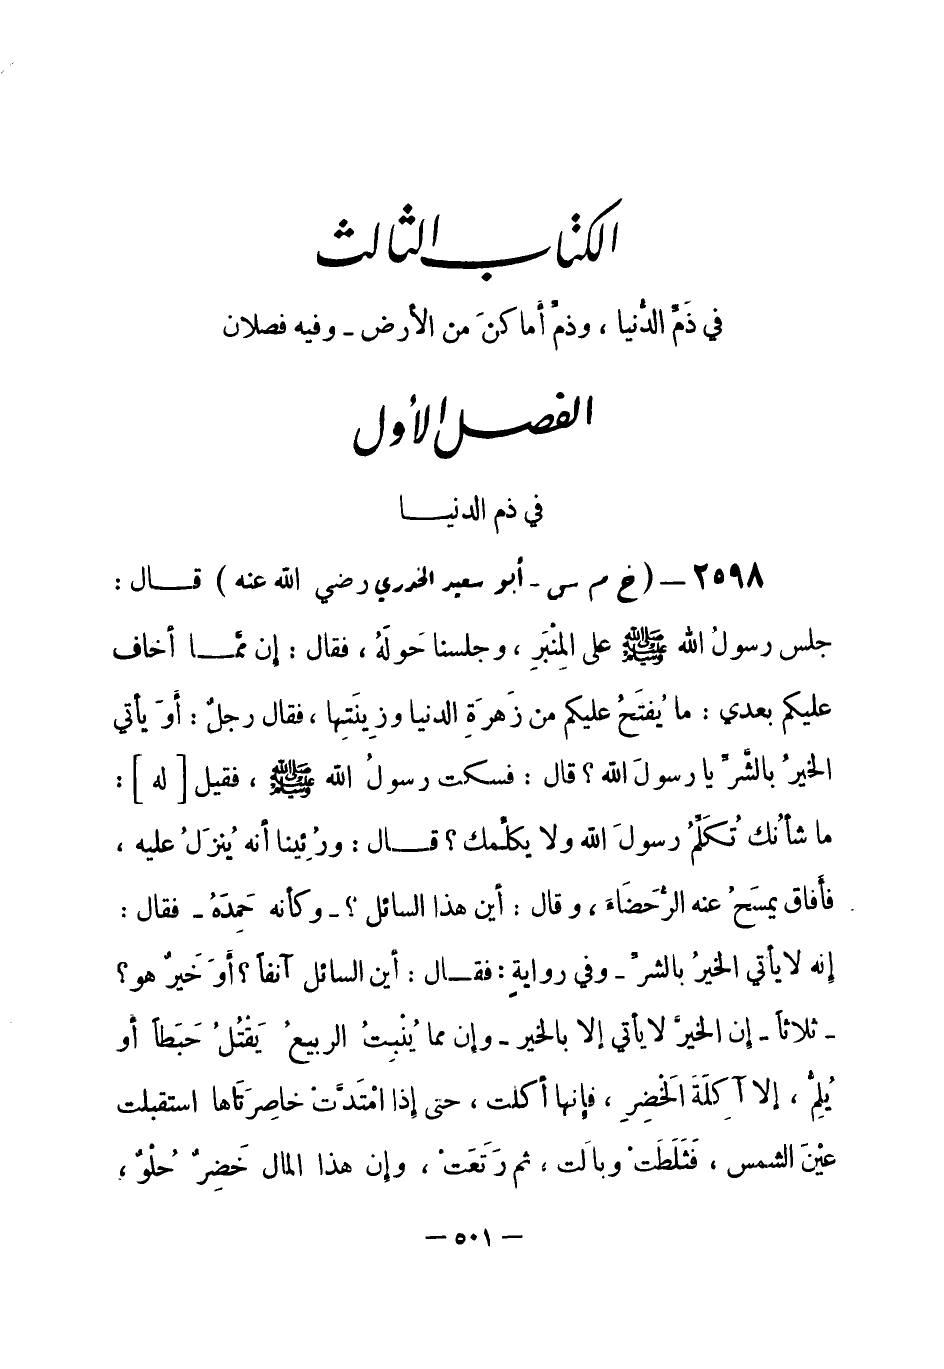 الكتاب الثالث
في ذَمِّ الدُّنيا ، وذمِّ أماكنَ من الأرض ـ وفيه فصلان
الفصل الأول
في ذم الدنيـــا
٢٥٩٨ – ( خ م س ـ أبو سعيد الخدري رضي الله عنه ) قـــال :
جلس رسولُ الله ﷺ على المِنْبَرِ ، وجلسنا حَولَهُ ، فقال : إن ممَّـا أخاف
عليكم بعدي : ما يُفتَحُ عليكم من زَهرَةِ الدنيا وزِينَتِها ، فقال رجلٌ : أَوَ يأتي
الخيرُ بالشَّرِّ يا رسولَ الله ؟ قال : فسكت رسولُ الله ﷺ ، فقيل [ له ] :
ما شأنك تُكَلِّمُ رسولَ الله ولا يكلِّمك ؟ قـــال : ورُئِينا أنه يُنزَلُ عليه ،
فأَفاق يمسَحُ عنه الرُّحَضَاءَ ، وقال : أين هذا السائل ؟ ـ وكأنه حَمِدَهُ ـ فقال :
إنه لا يأتي الخيرُ بالشرِّ ـ وفي روايةٍ : فقـــال : أين السائل آنفاً ؟ أَوَ خَيرٌ هو ؟
ـ ثلاثاً ـ إن الخيرَ لا يأتي إلا بالخير ـ وإن مما يُنْبِتُ الربيعُ يَقْتُلُ حَبَطاً أو
يُلِمُّ ، إلا آكِلَةَ الخَضِرِ ، فإنها أكلت ، حتى إذا امْتَدَّتْ خاصِرَتَاها استقبلت
عيْنَ الشمس ، فَثَلَطَتْ وبالَت ، ثم رَتَعَتْ ، وإن هذا المال خَضِرٌ حُلْوٌ ،
– ٥٠١ –